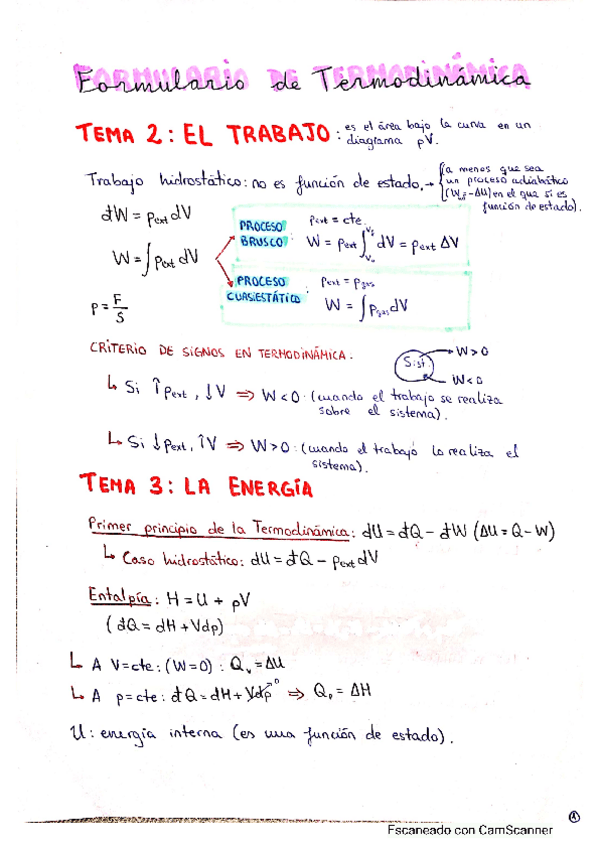 Formulario de Termodinámica
TEMA 2: EL TRABAJO: es el área bajo la curva en un
diagrama pV.
Trabajo hidrostático: no es función de estado. → (a menos que sea
un proceso adiabático
(Wad = -ΔU) en el que sí es
función de estado).
đW = pext dV
W = ∫ pext dV
p = F/S
PROCESO BRUSCO:
pext = cte.
W = pext ∫ dV = pext ΔV
PROCESO CUASIESTÁTICO:
pext = pgas
W = ∫ pgas dV
CRITERIO DE SIGNOS EN TERMODINÁMICA:
Sist.
W > 0
W < 0
↳ Si ↑ pext, ↓ V ⇒ W < 0: (cuando el trabajo se realiza
sobre el sistema).
↳ Si ↓ pext, ↑ V ⇒ W > 0: (cuando el trabajo lo realiza el
sistema).
TEMA 3: LA ENERGÍA
Primer principio de la Termodinámica: dU = đQ - đW (ΔU = Q - W)
↳ Caso hidrostático: dU = đQ - pext dV
Entalpía: H = U + pV
(đQ = dH + Vdp)
↳ A V = cte: (W = 0): Qv = ΔU
↳ A p = cte: đQ = dH + Vdp 0 ⇒ Qp = ΔH
U: energía interna (es una función de estado).
1
Escaneado con CamScanner